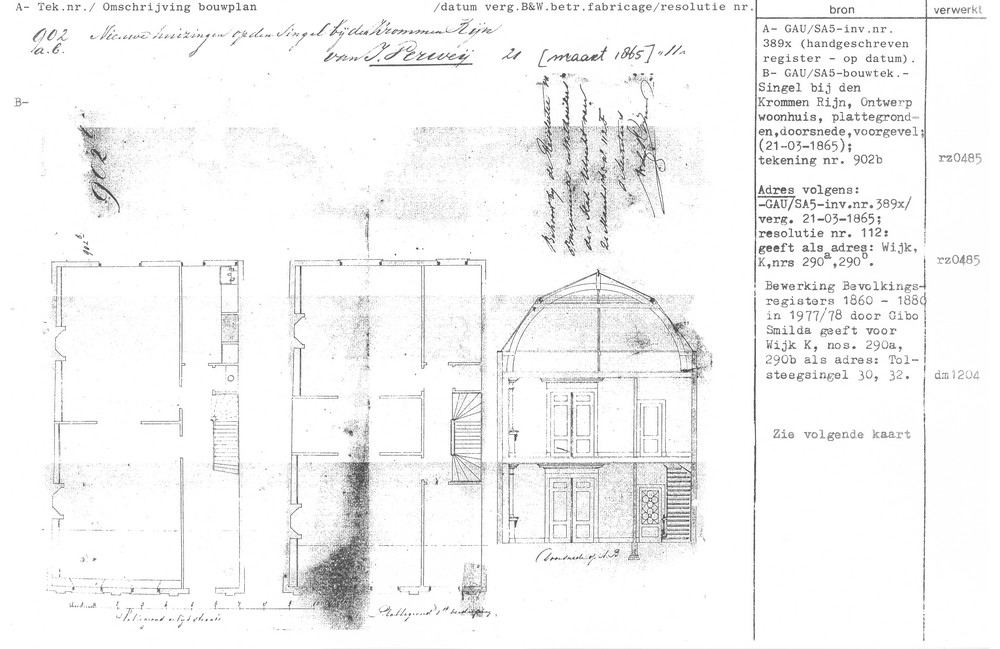 A- Tek.nr./ Omschrijving bouwplan /datum verg.B&W.betr.fabricage/resolutie nr.
902 Nieuwe huizingen op den Singel bij den Krommen Rijn
a.b. van J. Perweij 21 [maart 1865] "11"
B-
902 b
902b
Behoort bij de Resolutie v
Burgemeester en Wethouders
der Stad Utrecht van
Doorsnede op A.B
Plattegrond 1ste verdieping.
bron
verwerkt
A- GAU/SA5-inv.nr.
389x (handgeschreven
register - op datum).
B- GAU/SA5-bouwtek.-
Singel bij den
Krommen Rijn, Ontwerp
woonhuis, plattegrond-
en,doorsnede,voorgevel;
(21-03-1865);
tekening nr. 902b rz0485
Adres volgens:
-GAU/SA5-inv.nr.389x/
verg. 21-03-1865;
resolutie nr. 112:
geeft als adres: Wijk,
K,nrs 290a,290b. rz0485
Bewerking Bevolkings-
registers 1860 - 1880
in 1977/78 door Gibo
Smilda geeft voor
Wijk K, nos. 290a,
290b als adres: Tol-
steegsingel 30, 32. dm1204
Zie volgende kaart